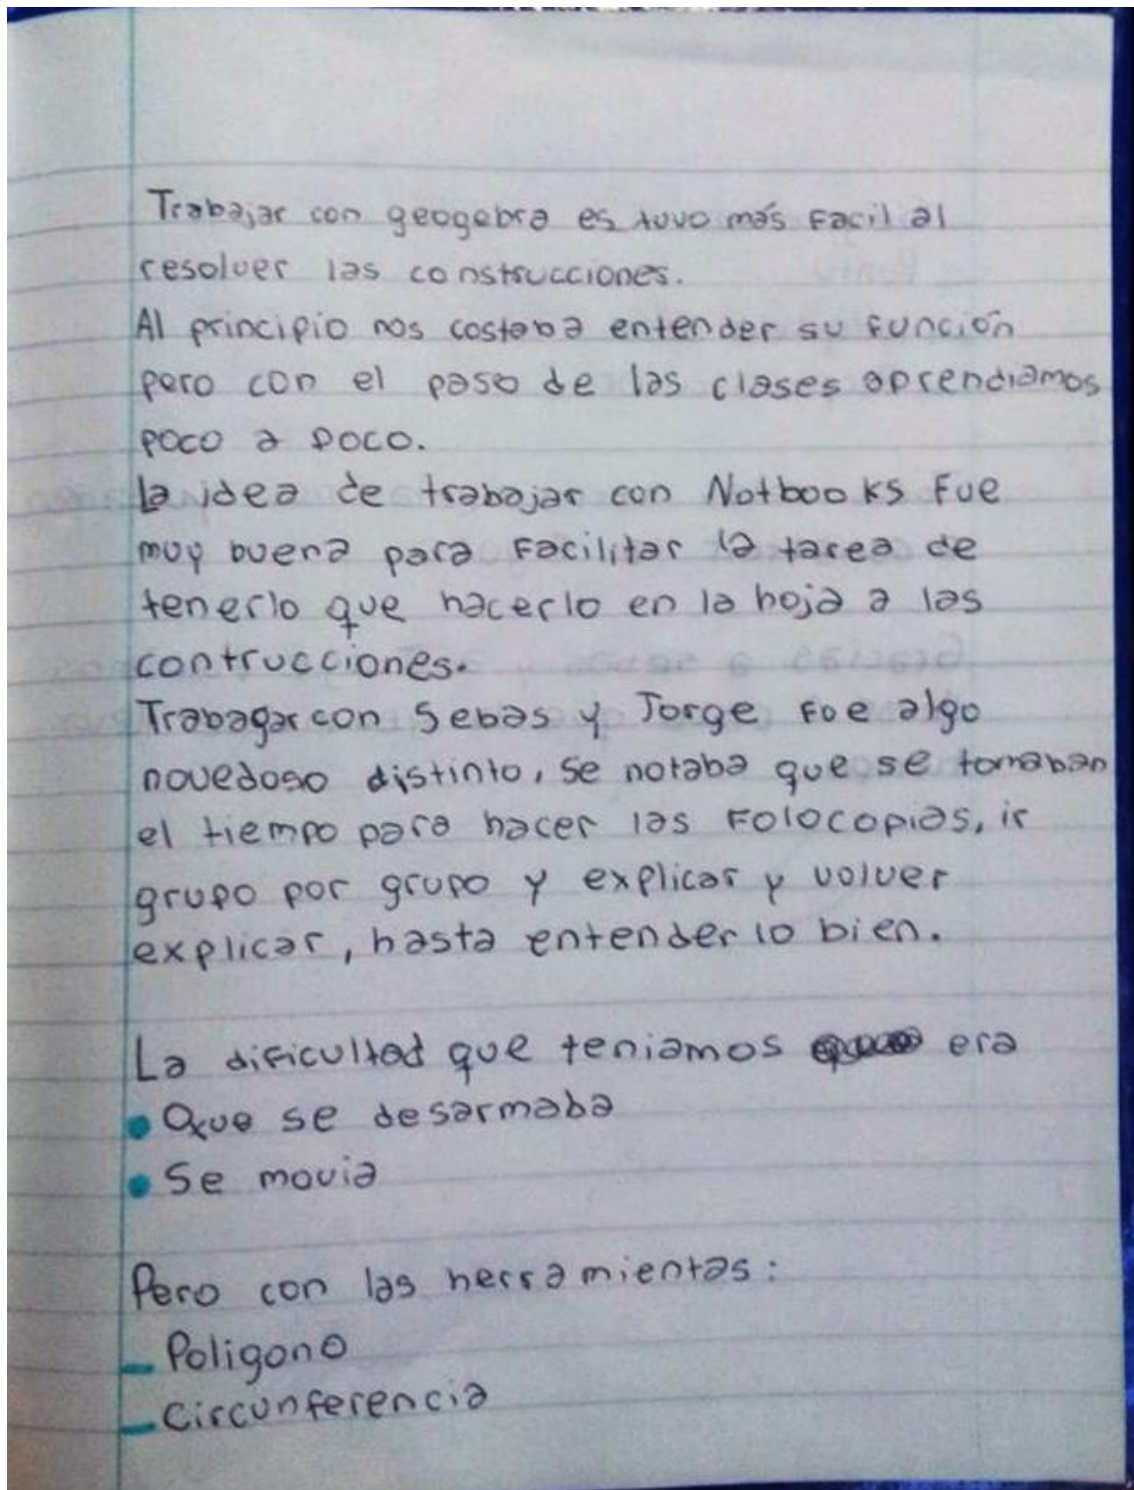 Trabajar con geogebra es tuvo más facil al
resolver las construcciones.
Al principio nos costaba entender su función
pero con el paso de las clases aprendiamos
poco a poco.
la idea de trabajar con Notbooks fue
muy buena para facilitar la tarea de
tenerlo que hacerlo en la hoja a las
contrucciones.
Trabagar con Sebas y Jorge foe algo
novedoso distinto, se notaba que se tomaban
el tiempo para hacer las folocopias, ir
grupo por grupo y explicar y volver
explicar, hasta entenderlo bien.
La dificultad que teniamos era
• Que se desarmaba
• Se movia
Pero con las herramientas:
- Poligono
- Circunferencia